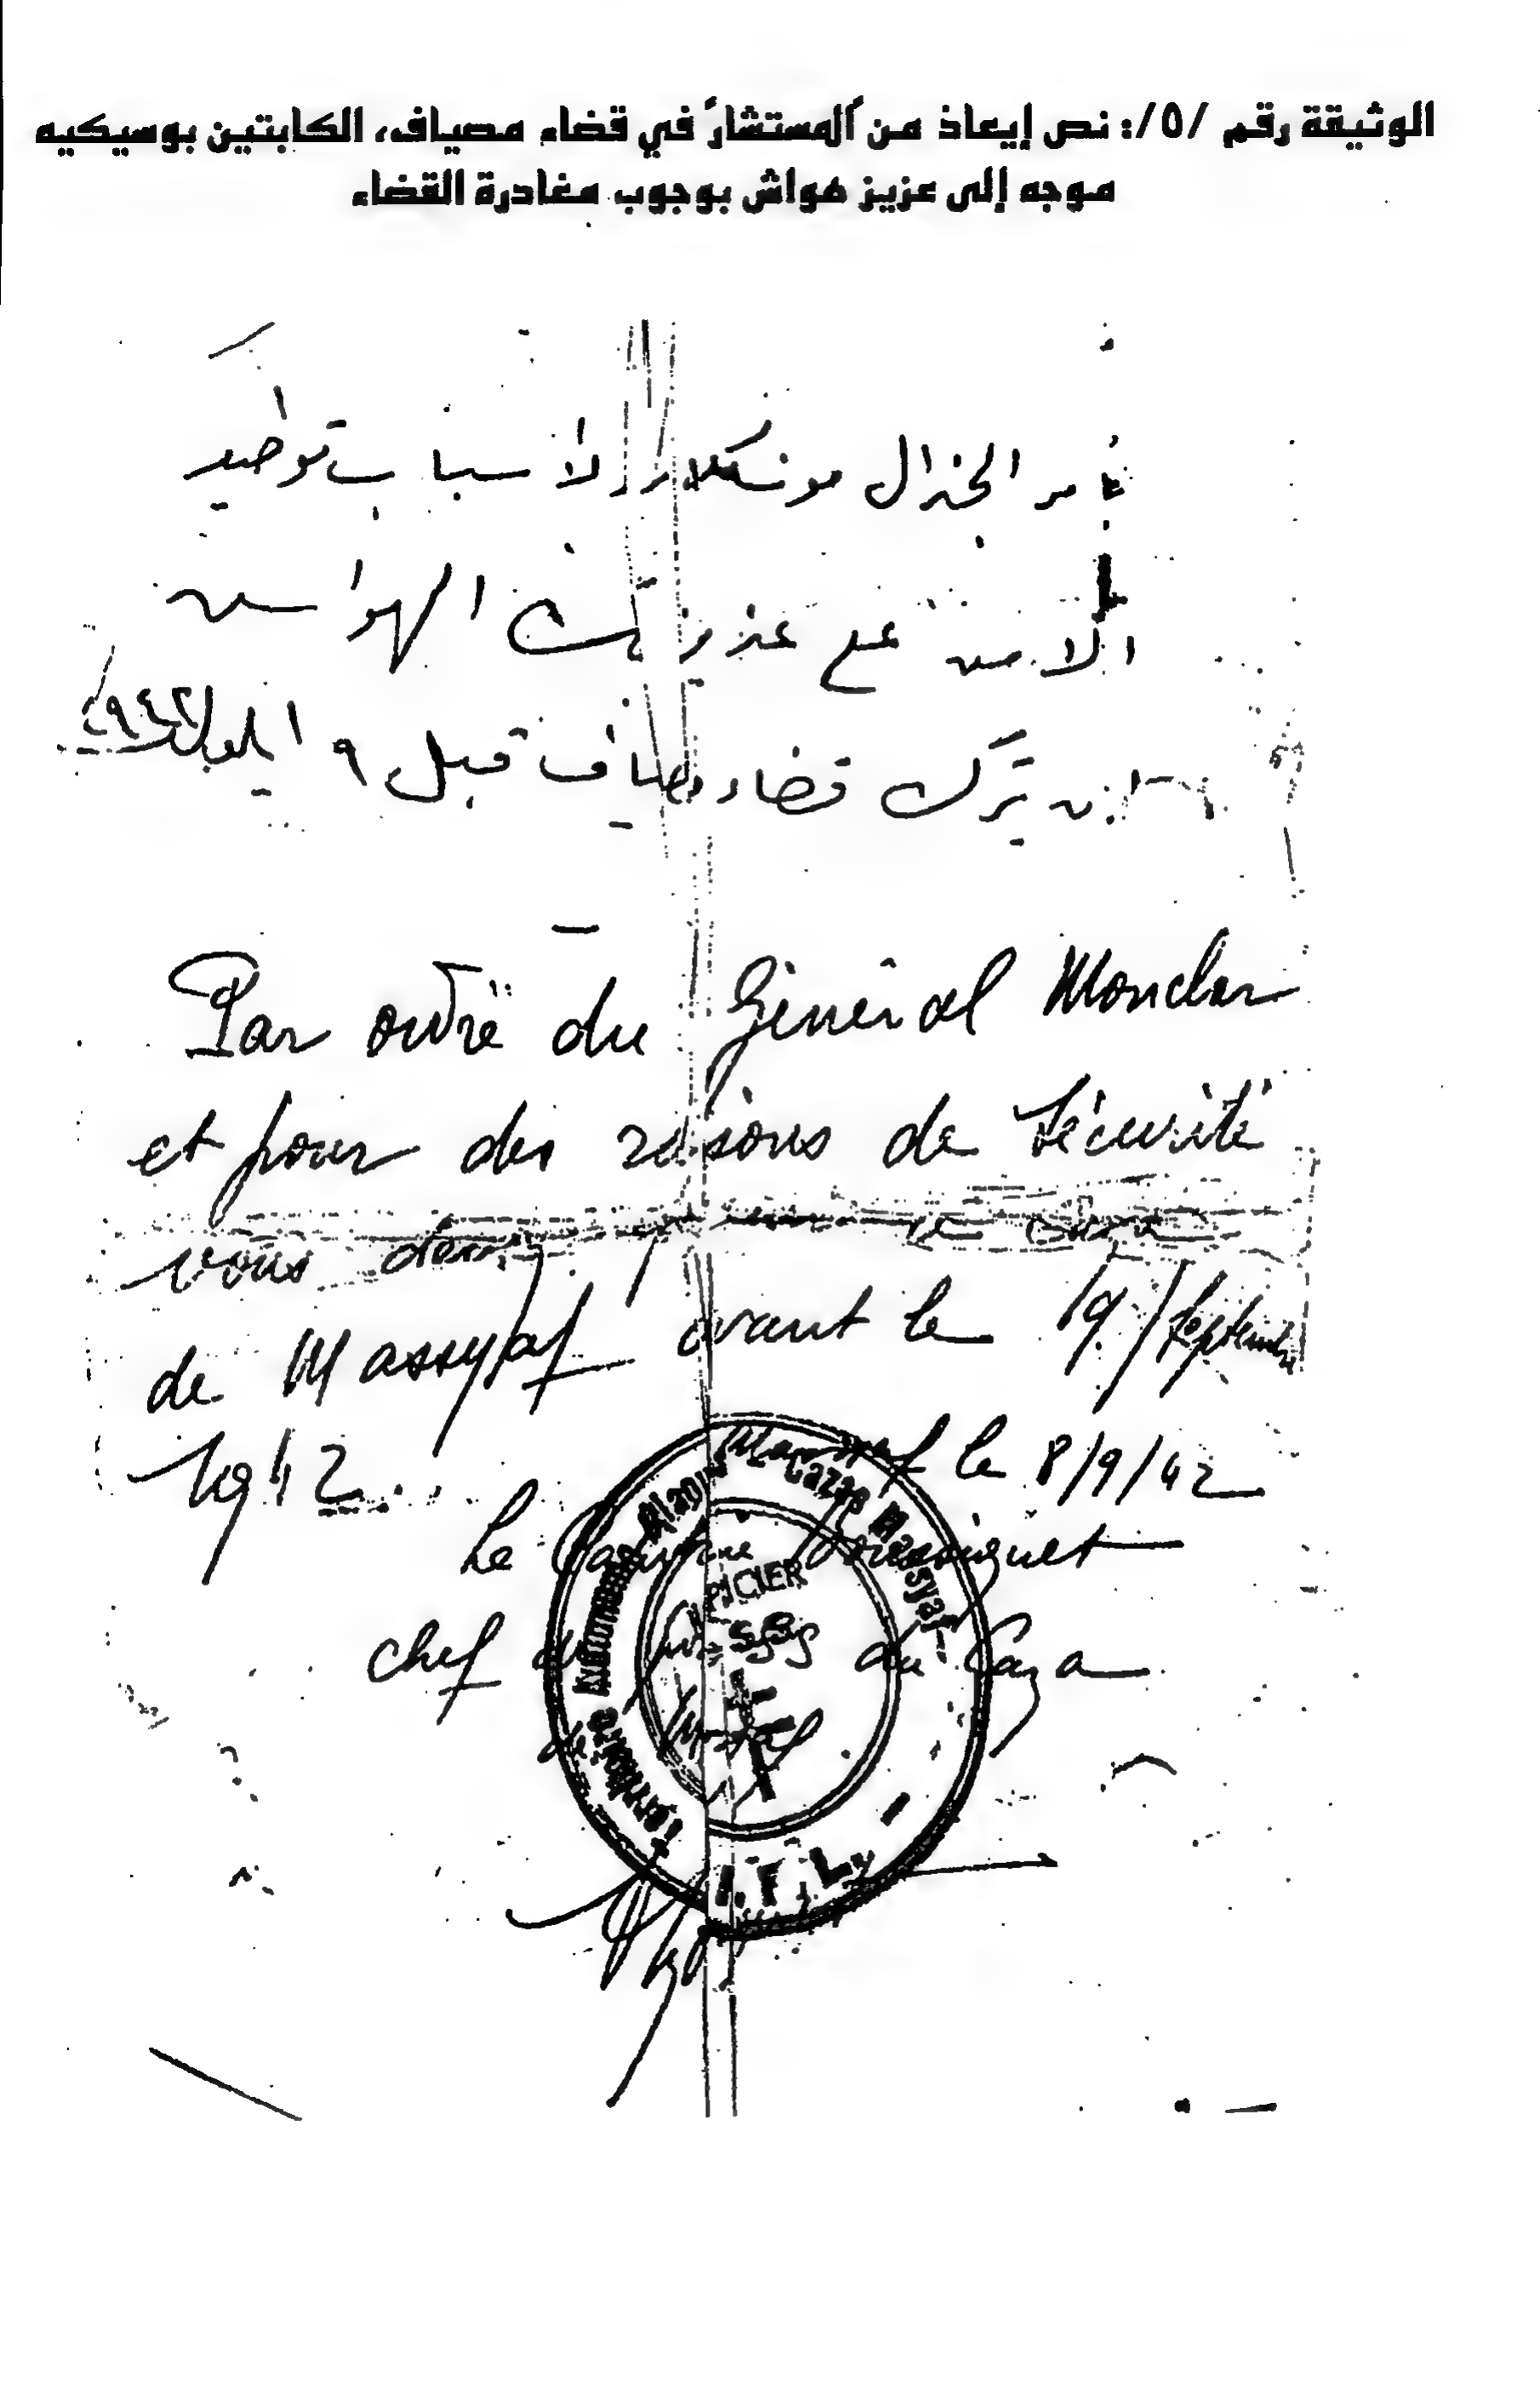 الوثيقة رقم /٥/: نص إيعاذ من "المستشار" في قضاء مصياف، الكابتين بوسيكيه
موجه إلى عزيز هواش بوجوب مغادرة القضاء
بأمر الجنرال مونكلار لاسباب توطيد
الامن على عزيز بك الهواش
ان يترك قضاء مصياف قبل ٩ ايلول ٩٤٢
Par ordre du Général Monclar
et pour des raisons de sécurité
vous devez
de Massyaf avant le 19/Septembre
1942.
le 8/9/42
Le Capitaine Boussiquet
chef du du Caza
de
Territoire Alaouite Cazas Massyaf
OFFICIER